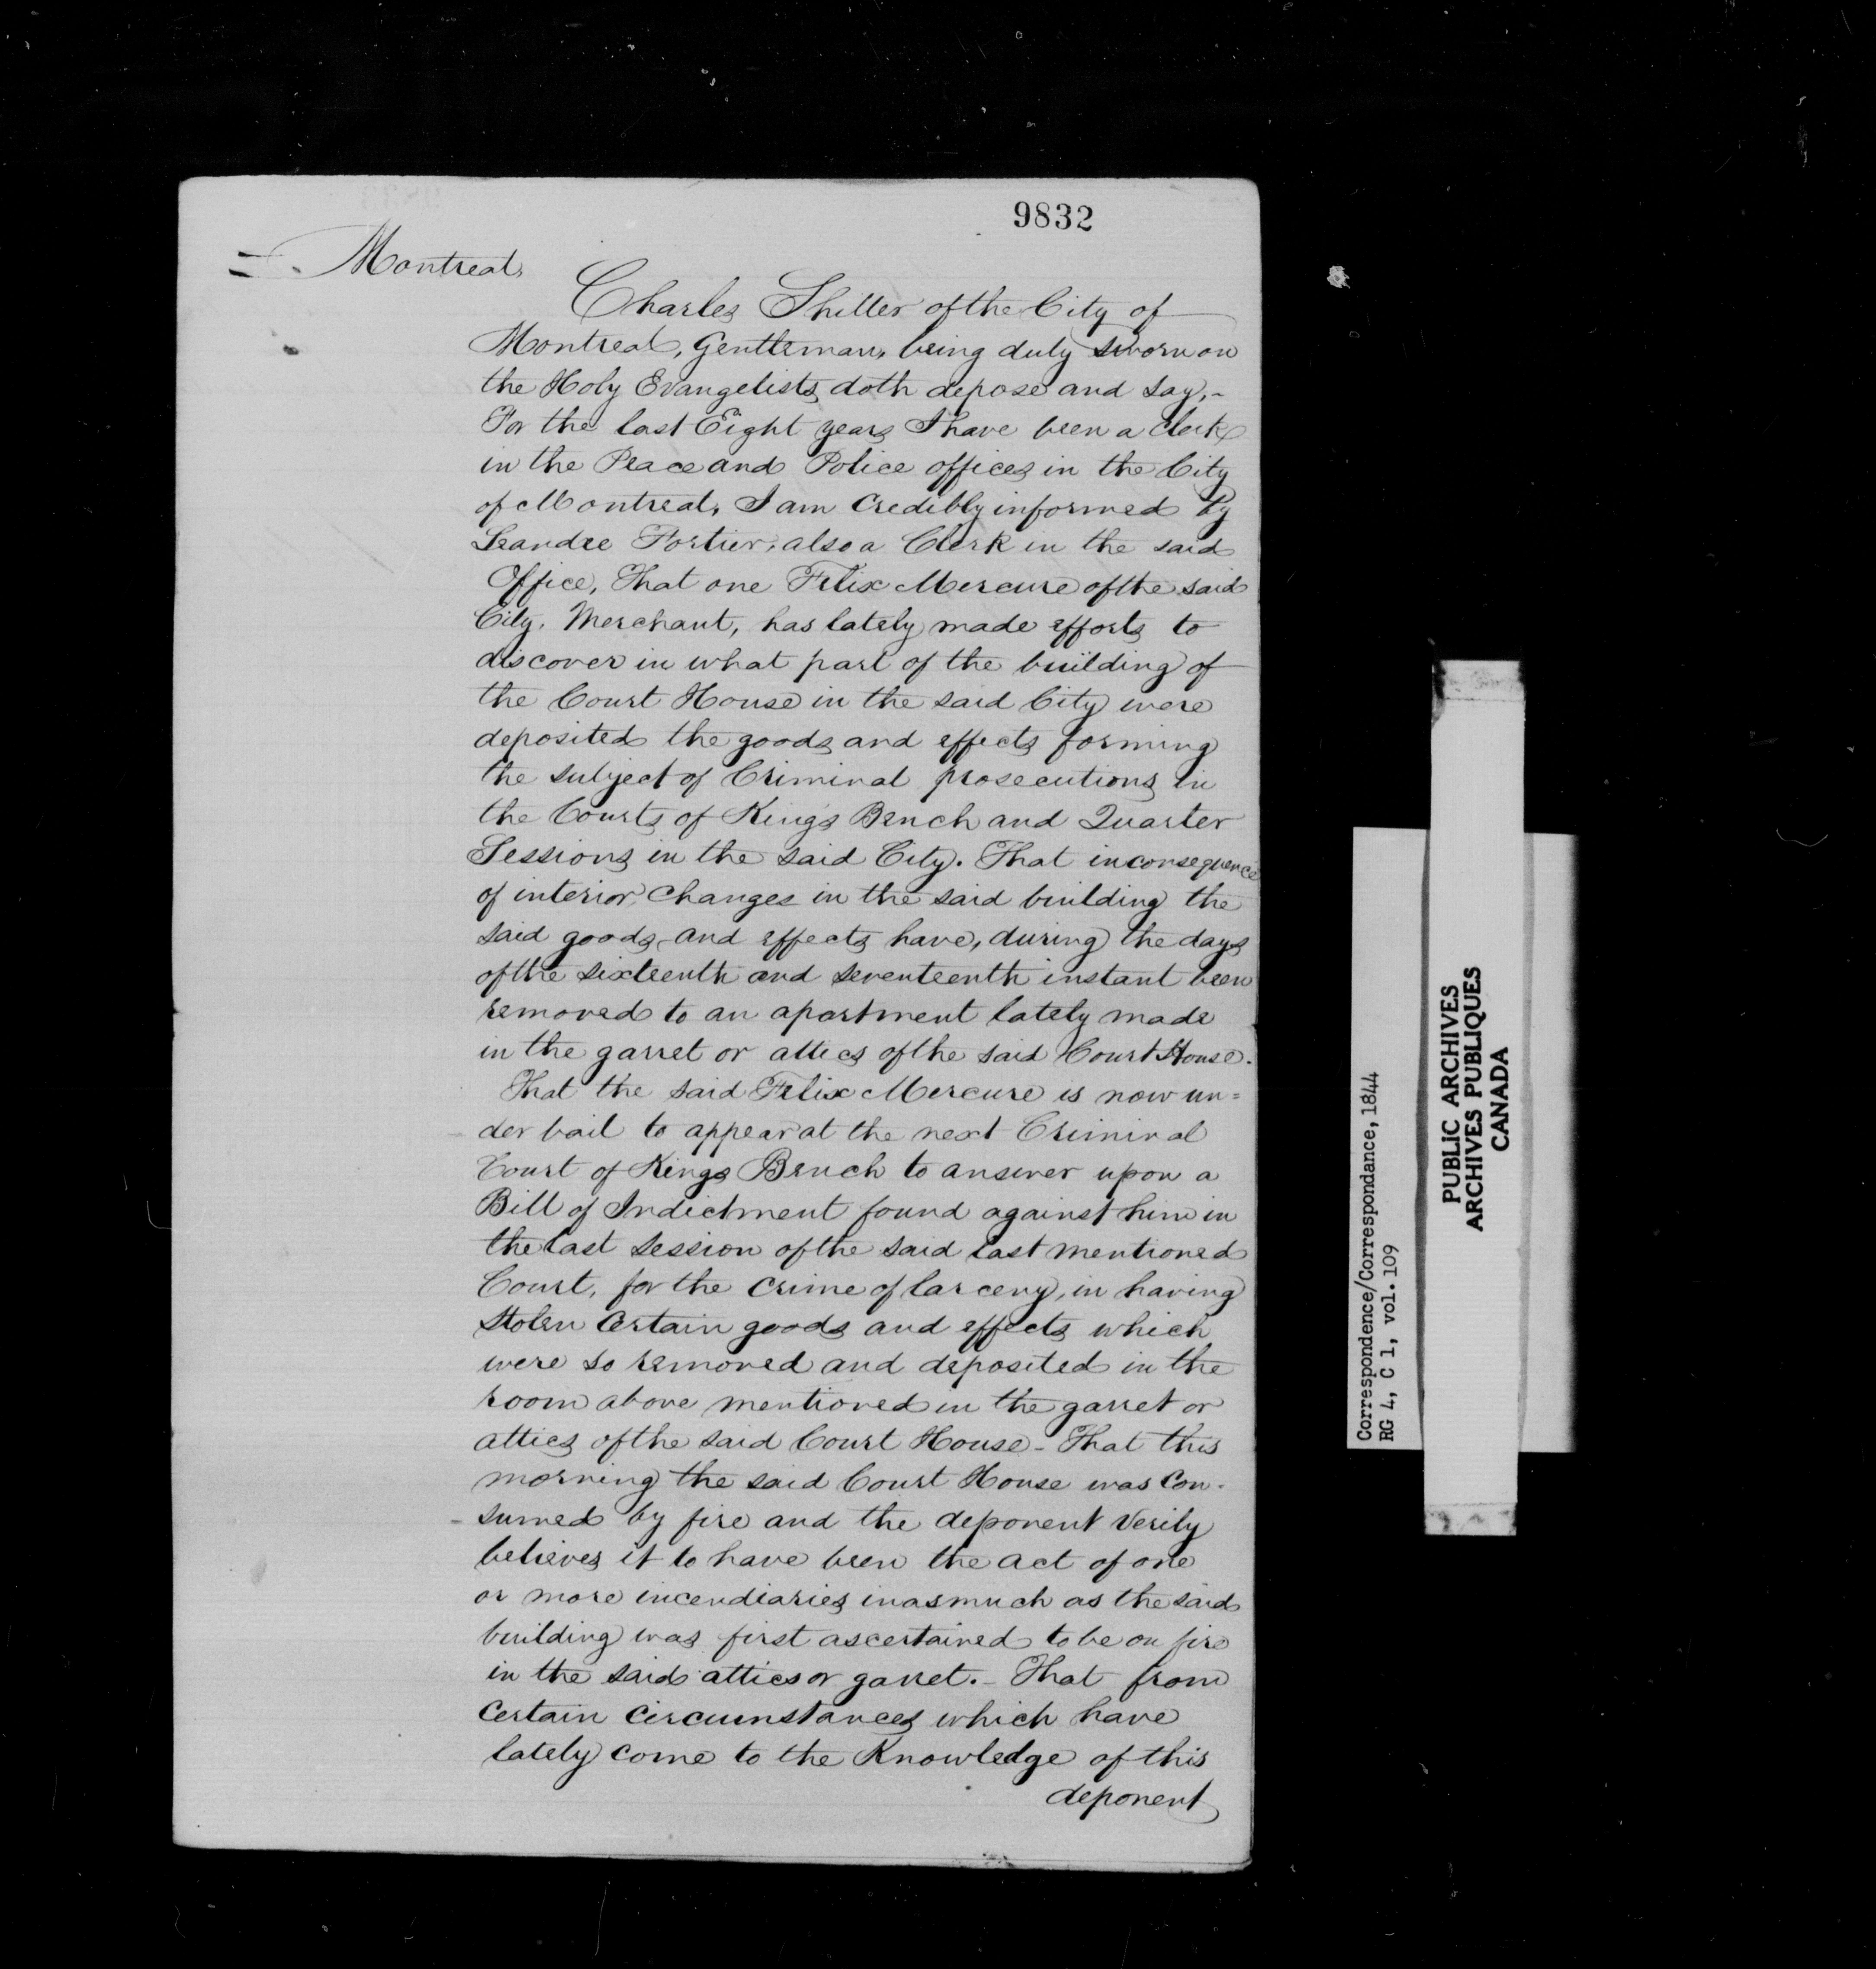 9832
Montreal,
Charles Shiller of the City of
Montreal, Gentleman, being duly sworn on
the Holy Evangelists doth depose and say,-
For the last Eight years I have been a Clerk
in the Peace and Police offices in the City
of Montreal, I am Credibly informed by
Leandre Fortier, also a Clerk in the said
Office, That one Felix Mercure of the said
City, Merchant, has lately made efforts to
discover in what part of the building of
the Court House in the said City were
deposited the goods and effects forming
the subject of Criminal prosecutions in
the Courts of King's Bench and Quarter
Sessions in the said City. That in consequence
of interior Changes in the said building the
said goods and effects have, during the days
of the sixteenth and seventeenth instant been
removed to an apartment lately made
in the garret or attics of the said Court House.
That the said Felix Mercure is now un=
der bail to appear at the next Criminal
Court of Kings Bench to answer upon a
Bill of Indictment found against him in
the last session of the said last mentioned
Court, for the Crime of larceny, in having
stolen Certain goods and effects which
were so removed and deposited in the
room above mentioned in the garret or
attics of the said Court House - That this
morning the said Court House was Con-
-sumed by fire and the deponent Verily
believes it to have been the act of one
or more incendiaries inasmuch as the said
building was first ascertained to be on fire
in the said attics or garret. - That from
Certain Circumstances which have
lately Come to the Knowledge of this
deponent
Correspondence/Correspondance, 1844
RG 4, C 1, vol. 109
PUBLIC ARCHIVES
ARCHIVES PUBLIQUES
CANADA